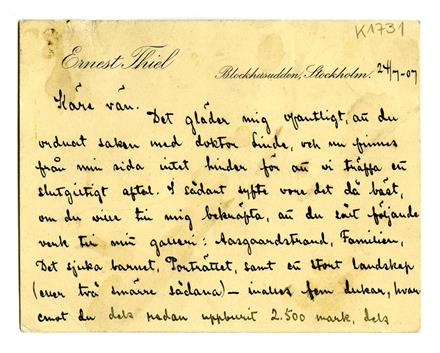 K1731
Ernest Thiel
Blockhusudden, Stockholm. 24/7-07
Käre vän.
Det gläder mig ofantligt, att du
ordnat saken med doktor Linde, och nu finnes
från min sida intet hinder för att vi träffa ett
slutgiltigt aftal. I sådant syfte vore det då bäst,
om du ville till mig bekräfta, att du sålt följande
verk till mitt galleri: Aasgaardstrand, Familien,
Det sjuka barnet, Porträttet, samt ett stort landskap
(eller två smärre sådana) — inalles fem dukar, hvar
emot du dels redan uppburit 2.500 mark, dels